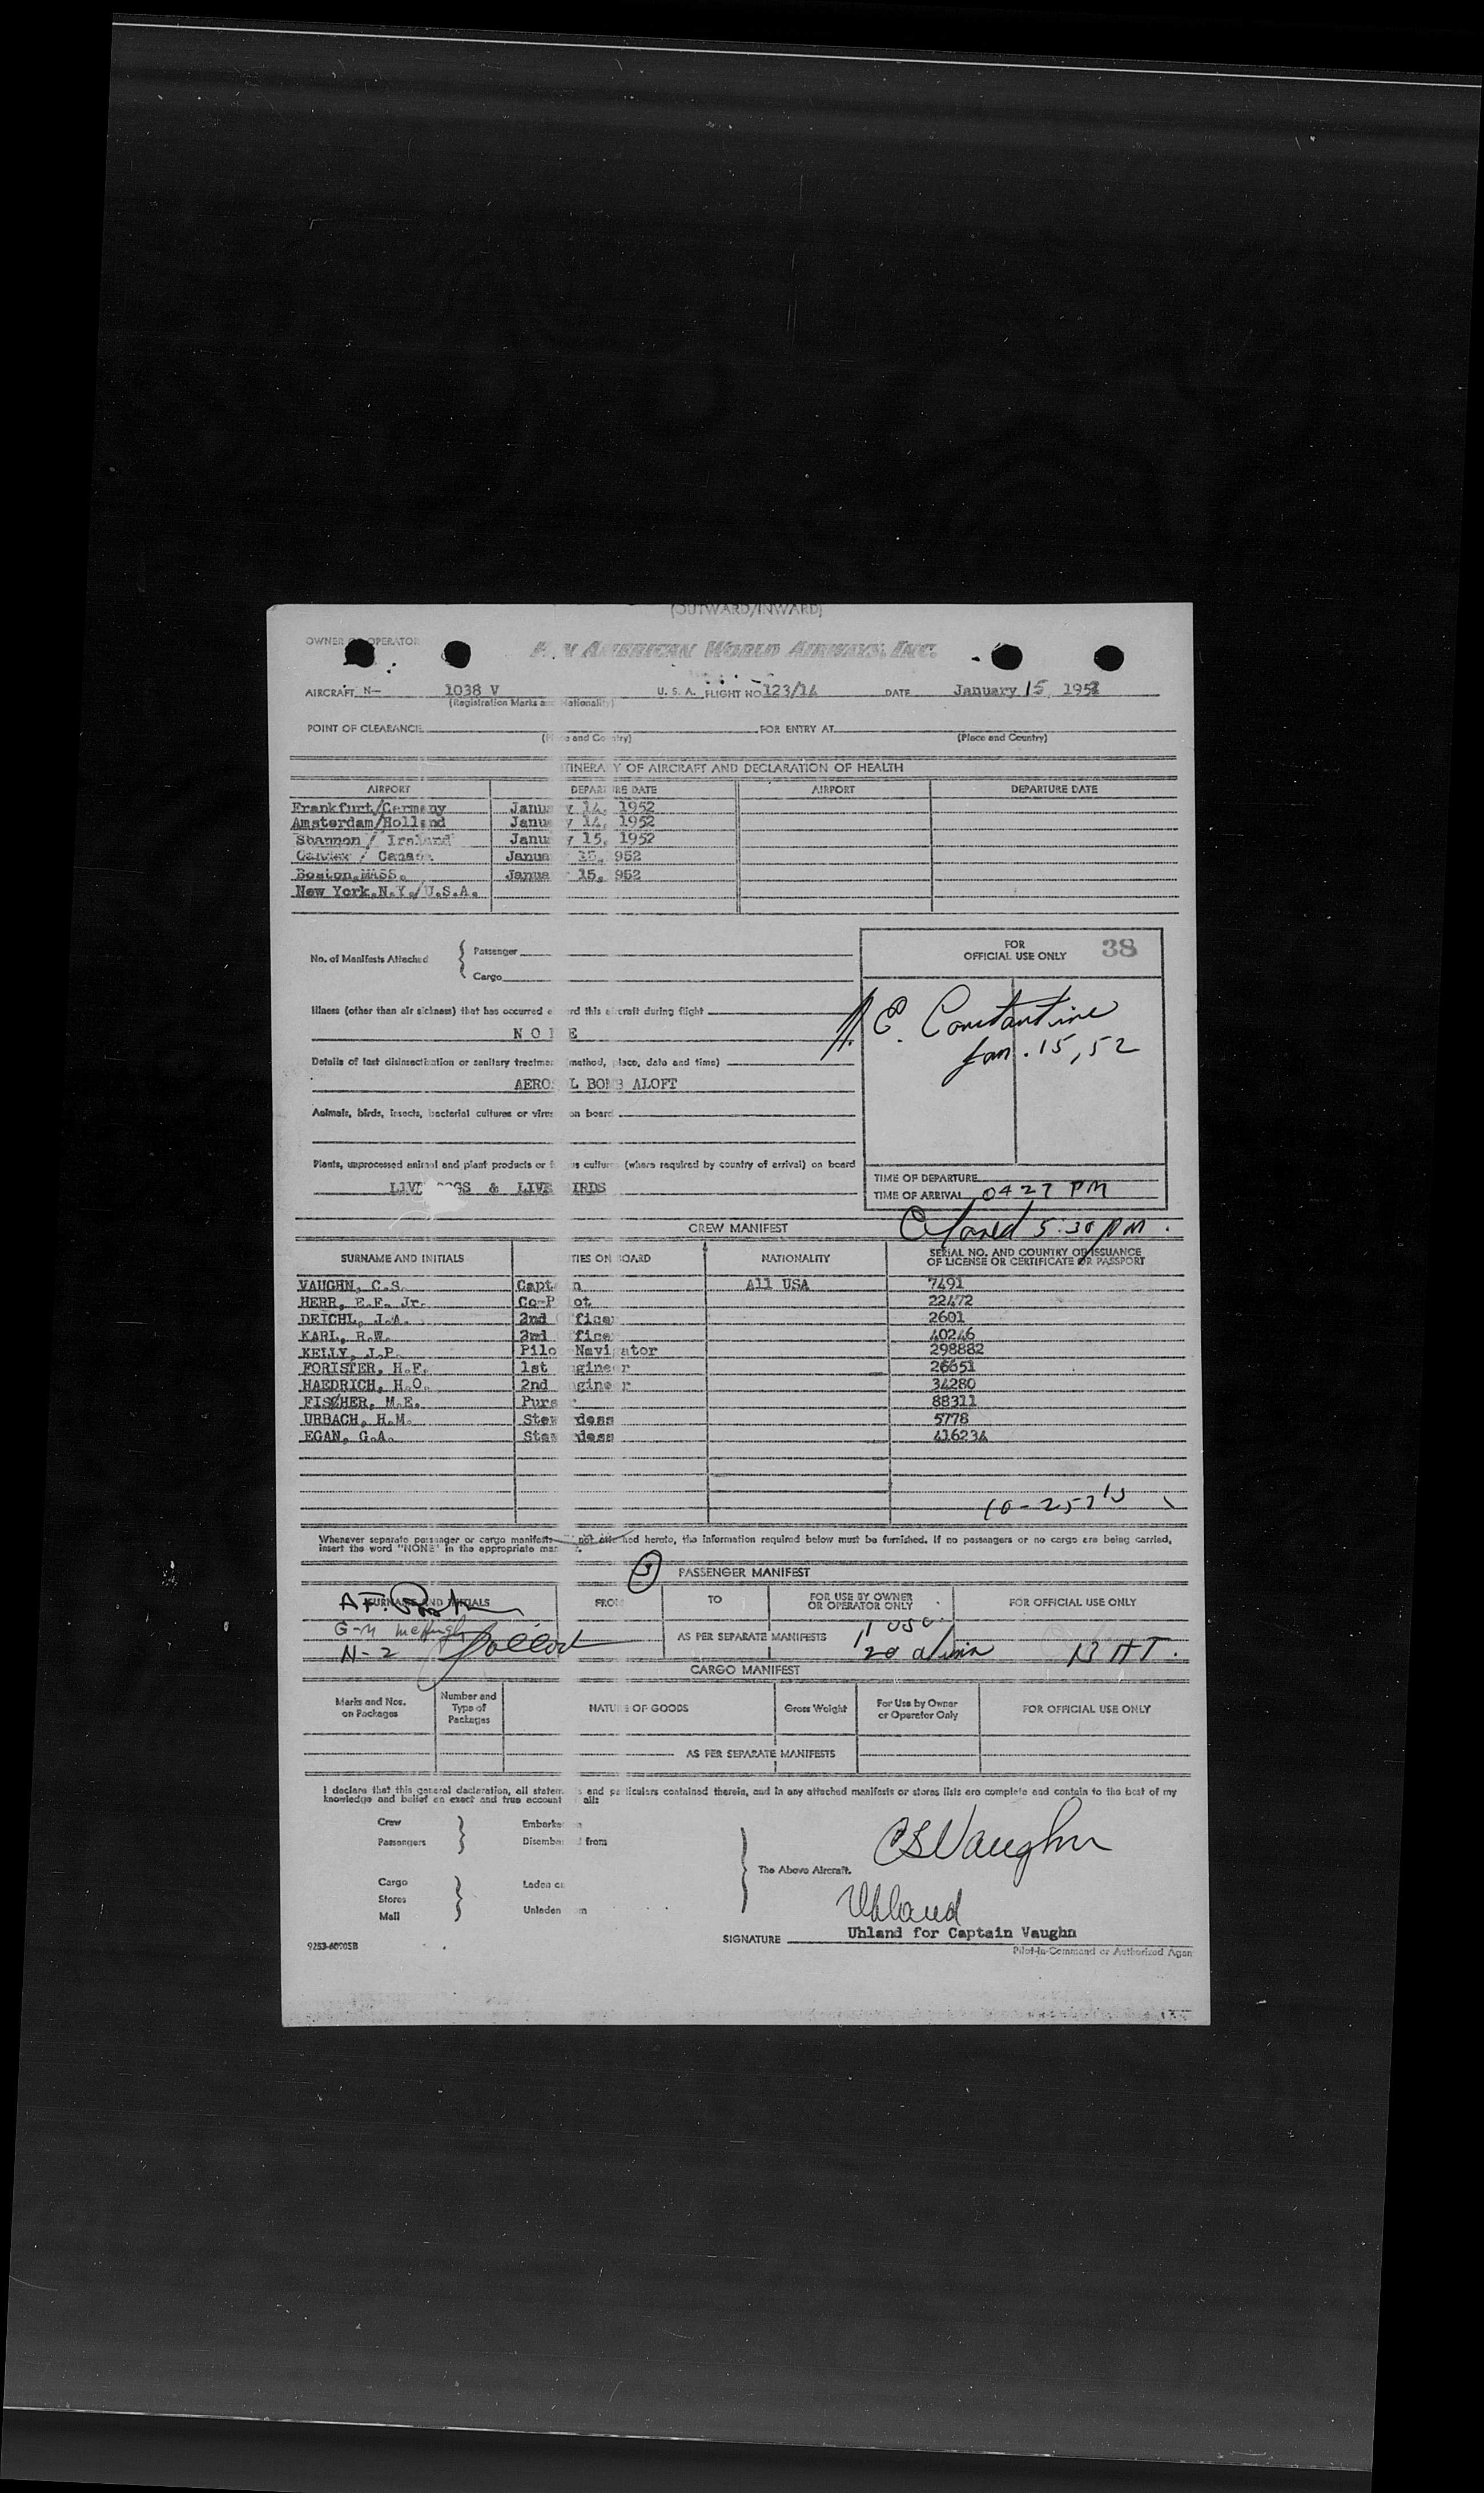 (OUTWARD/INWARD)
OWNER OPERATOR
AMERICAN WORLD AIRWAYS, INC.
AIRCRAFT N- 1038 V U. S. A. FLIGHT NO 123/14 DATE January 15, 1952
(Registration Marks
POINT OF CLEARANCE FOR ENTRY AT
(Place and Country)
OF AIRCRAFT AND DECLARATION OF HEALTH
AIRPORT DEPARTURE DATE AIRPORT DEPARTURE DATE
Frankfurt/Germany January 14, 1952
Amsterdam/Holland January 14, 1952
Shannon / Ireland January 15, 1952
Canada 15, 952
Boston,MASS. 15, 952
New York,N.Y./U.S.A.
No. of Manifests Attached { Passenger
Cargo
FOR
OFFICIAL USE ONLY 38
E. Constantine
Jan. 15, 52
Illness (other than air sickness) that has occurred this aircraft during flight
NONE
Details of last disinsectization or sanitary treatment (method, place, date and time)
AEROSOL BOMB ALOFT
Animals, birds, insects, bacterial cultures or virus on board
Plants, unprocessed animal and plant products or cultures (where required by country of arrival) on board
LIVE & LIVE BIRDS
TIME OF DEPARTURE
TIME OF ARRIVAL 0427 PM
5:30 PM.
CREW MANIFEST
SURNAME AND INITIALS ON BOARD NATIONALITY SERIAL NO. AND COUNTRY OF ISSUANCE
OF LICENSE OR CERTIFICATE OR PASSPORT
VAUGHN, C.S. Captain All USA 7491
HERR, E.F. Jr. Co-Pilot 22472
DEICHL, J.A. 2nd Officer 2601
KARL, R.W. 3rd Officer 40246
KELLY, J.P. Pilot Navigator 298882
FORISTER, H.F. 1st Engineer 26651
HAEDRICH, H.O. 2nd Engineer 34280
FISCHER, M.E. Purser 88311
URBACH, H.M. Stewardess 5778
EGAN, G.A. Stewardess 416234
Whenever separate passenger or cargo manifests not attached hereto, the information required below must be furnished. If no passengers or no cargo are being carried,
insert the word "NONE" in the appropriate
3 PASSENGER MANIFEST
SURNAME AND INITIALS FROM TO FOR USE BY OWNER
OR OPERATOR ONLY FOR OFFICIAL USE ONLY
AS PER SEPARATE MANIFESTS
N-2 20
CARGO MANIFEST
Marks and Nos.
on Packages Number and
Type of
Packages NATURE OF GOODS Gross Weight For Use by Owner
or Operator Only FOR OFFICIAL USE ONLY
AS PER SEPARATE MANIFESTS
I declare that this general declaration, all statements and particulars contained therein, and in any attached manifests or stores lists are complete and contain to the best of my
knowledge and belief an exact and true account
Crew
Passengers
from
Cargo
Stores
Mail
Laden
Unladen
The Above Aircraft.
CSVaughn
Uhland
SIGNATURE Uhland for Captain Vaughn
Pilot-in-Command or Authorized Agen